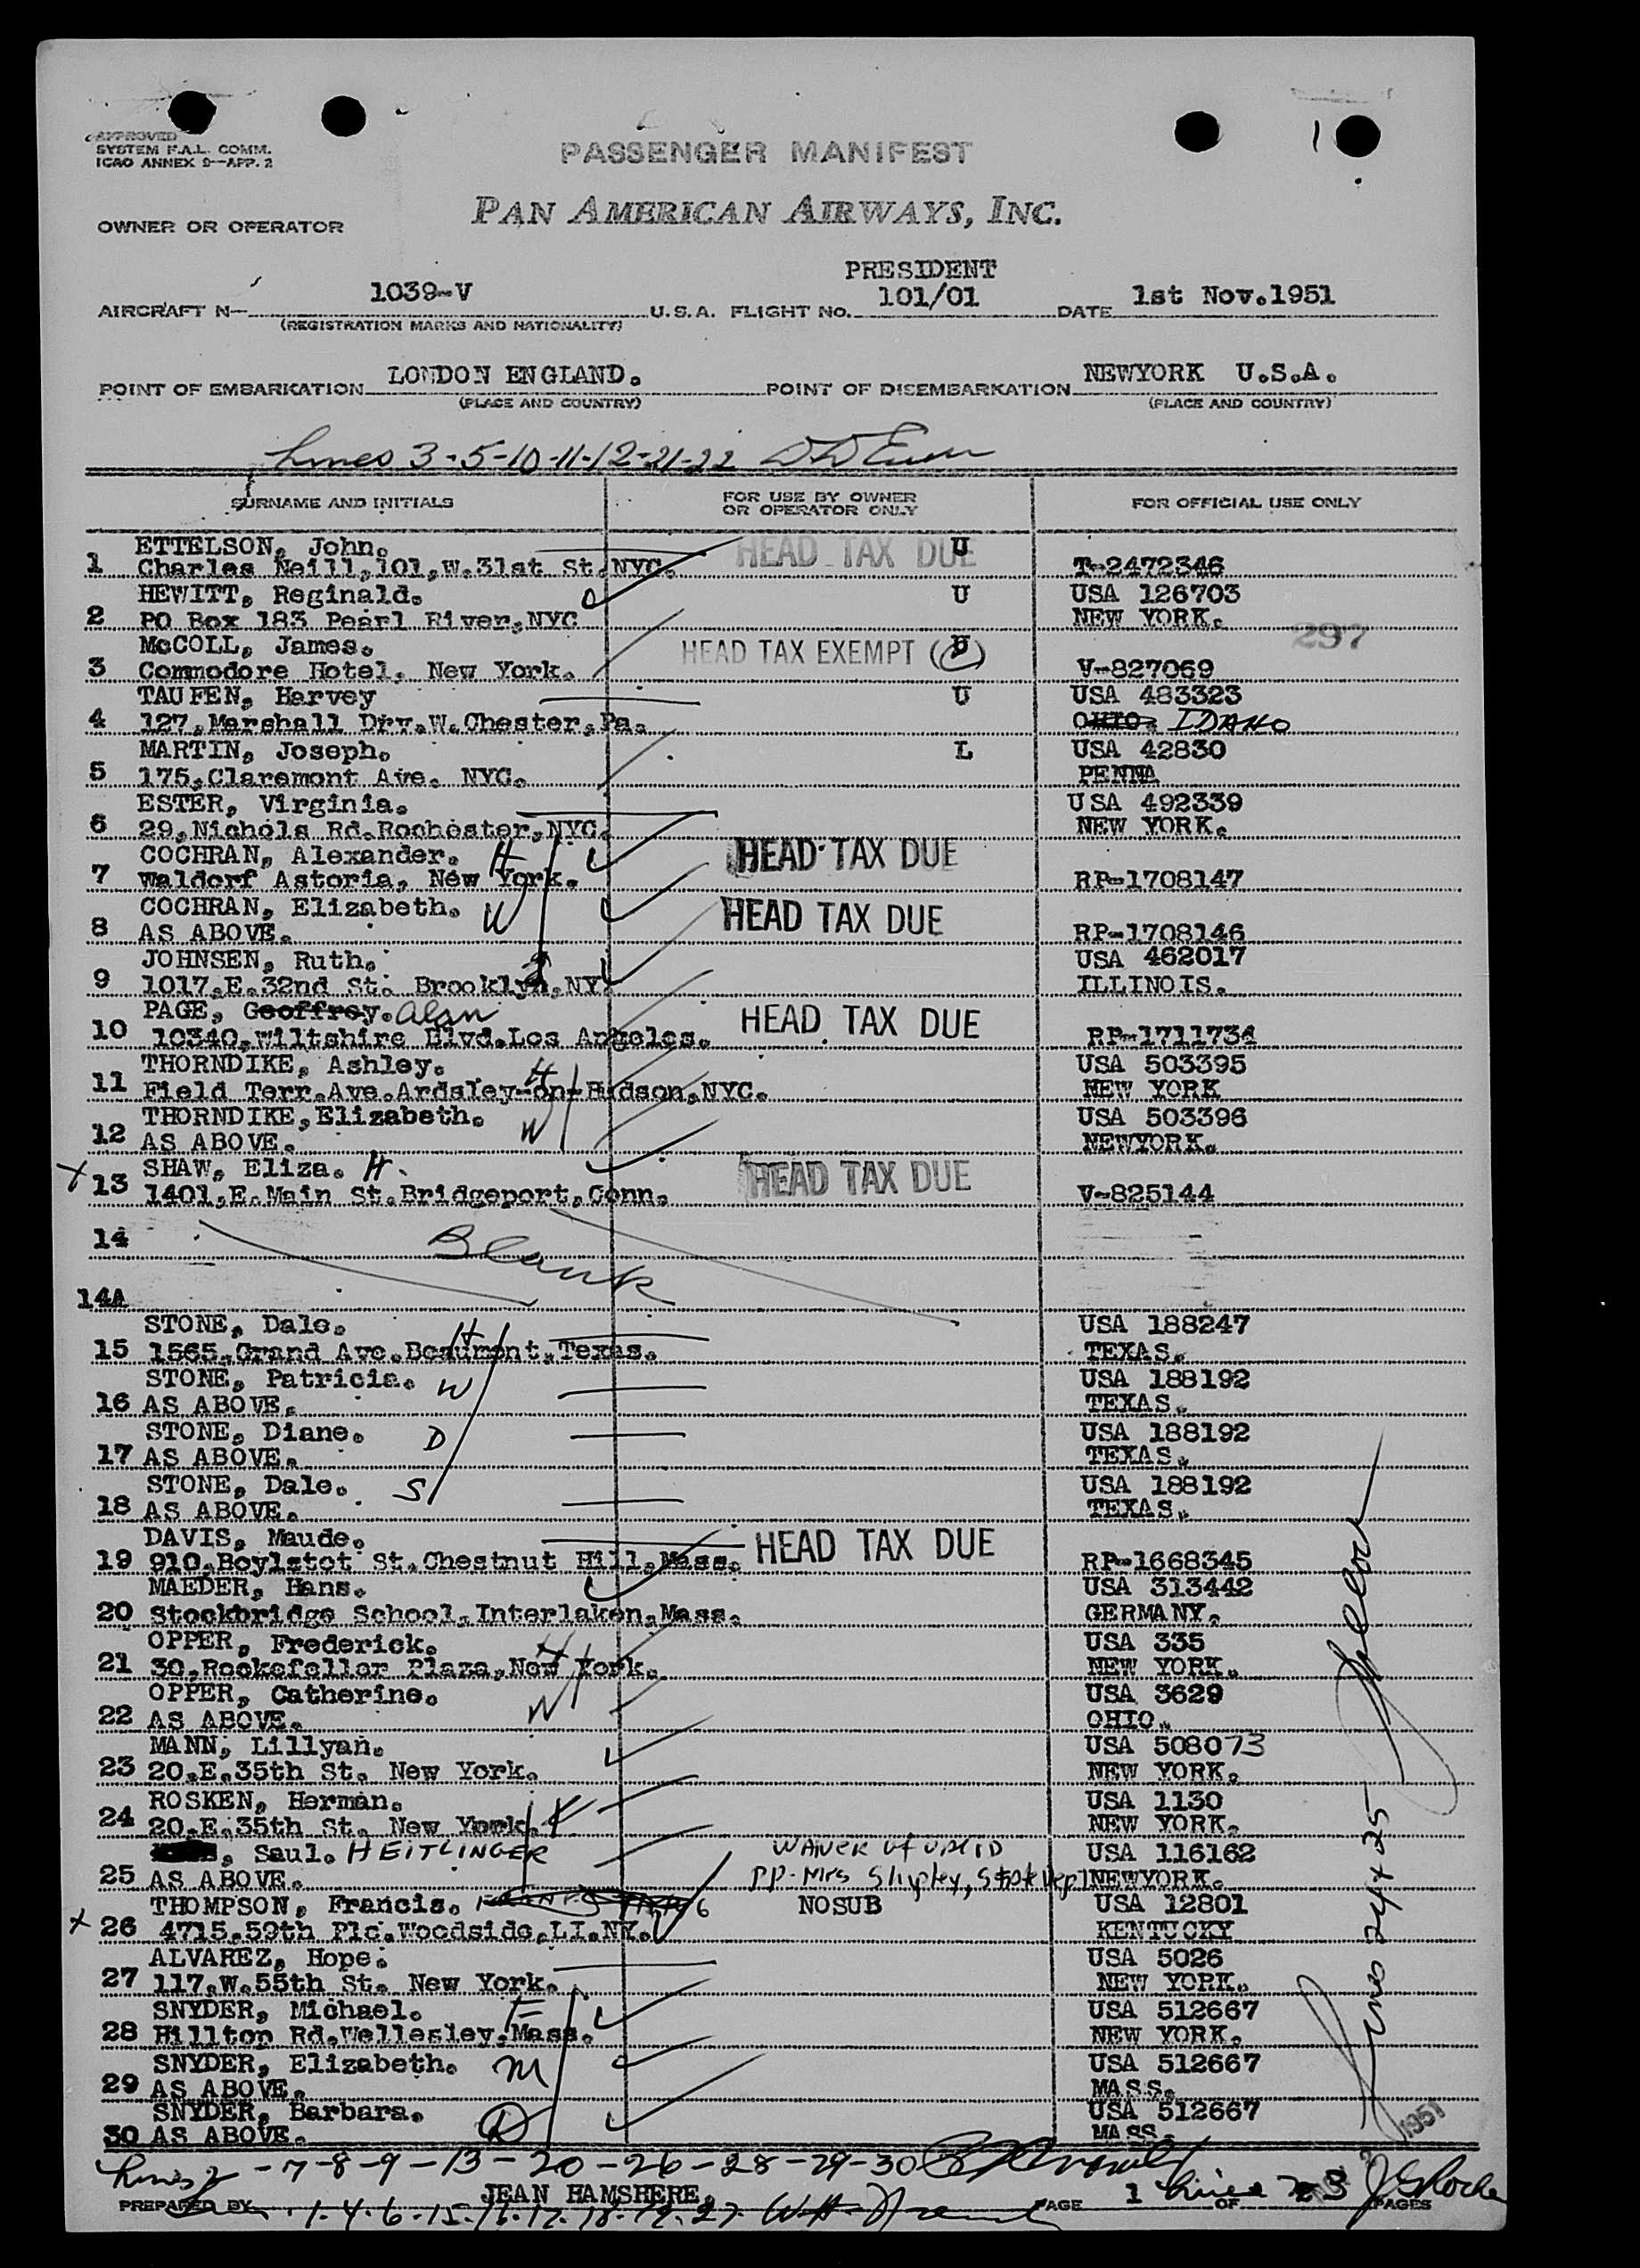 APPROVED
SYSTEM F.A.L. COMM.
ICAO ANNEX 9--APP. 2
PASSENGER MANIFEST
1
PAN AMERICAN AIRWAYS, INC.
OWNER OR OPERATOR
PRESIDENT
AIRCRAFT N- 1039-V U.S.A. FLIGHT NO. 101/01 DATE 1st Nov.1951
(REGISTRATION MARKS AND NATIONALITY)
POINT OF EMBARKATION LONDON ENGLAND. POINT OF DISEMBARKATION NEWYORK U.S.A.
(PLACE AND COUNTRY) (PLACE AND COUNTRY)
Lines 3-5-10-11-12-21-22
SURNAME AND INITIALS FOR USE BY OWNER OR OPERATOR ONLY FOR OFFICIAL USE ONLY
ETTELSON, John. HEAD TAX DUE U
1 Charles Neill,101,W.31st St.NYC. T-2472346
HEWITT, Reginald. U USA 126703
2 PO Box 183 Pearl River,NYC NEW YORK.
297
McCOLL, James. HEAD TAX EXEMPT
3 Commodore Hotel, New York. V-827069
TAUFEN, Harvey U USA 483323
4 127,Marshall Drv.W.Chester,Pa. OHIO. IDAHO
MARTIN, Joseph. L USA 42830
5 175,Claremont Ave. NYC. PENNA
ESTER, Virginia. USA 492339
6 29,Nichols Rd.Rochester,NYC. NEW YORK.
COCHRAN, Alexander. H HEAD TAX DUE
7 Waldorf Astoria, New York. RP-1708147
COCHRAN, Elizabeth. W HEAD TAX DUE
8 AS ABOVE. RP-1708146
JOHNSEN, Ruth. USA 462017
9 1017,E.32nd St. Brooklyn,NY. ILLINOIS.
PAGE, Geoffrey. Alan HEAD TAX DUE
10 10340,Wiltshire Blvd.Los Angeles. RP-1711734
THORNDIKE, Ashley. H USA 503395
11 Field Terr.Ave.Ardsley-on-Hudson,NYC. NEW YORK
THORNDIKE,Elizabeth. W USA 503396
12 AS ABOVE. NEWYORK.
SHAW, Eliza. H. HEAD TAX DUE
x 13 1401,E.Main St.Bridgeport,Conn. V-825144
14 Blank
14A
STONE, Dale. H USA 188247
15 1565,Grand Ave.Beaumont,Texas. TEXAS.
STONE, Patricia. W USA 188192
16 AS ABOVE. TEXAS.
STONE, Diane. D USA 188192
17 AS ABOVE. TEXAS.
STONE, Dale. S USA 188192
18 AS ABOVE. TEXAS.
DAVIS, Maude. HEAD TAX DUE
19 910,Boylstot St.Chestnut Hill,Mass. RP-1668345
MAEDER, Hans. USA 313442
20 Stockbridge School,Interlaken,Mass. GERMANY.
OPPER, Frederick. H USA 335
21 30,Rockefeller Plaza,New York. NEW YORK.
OPPER, Catherine. W USA 3629
22 AS ABOVE. OHIO.
MANN, Lillyan. USA 508073
23 20.E.35th St. New York. NEW YORK.
ROSKEN, Herman. USA 1130
24 20.E.35th St. New York. NEW YORK.
, Saul. HEITLINGER WAIVER of USA 116162
25 AS ABOVE. PP-Mrs Shipley, State Dept NEWYORK.
THOMPSON, Francis. NOSUB USA 12801
x 26 4715,59th Plc.Woodside,LI.NY. KENTUCKY
ALVAREZ, Hope. USA 5026
27 117.W.55th St. New York. NEW YORK.
SNYDER, Michael. F USA 512667
28 Hilltop Rd.Wellesley,Mass. NEW YORK.
SNYDER, Elizabeth. M USA 512667
29 AS ABOVE. MASS.
SNYDER, Barbara. D USA 512667
30 AS ABOVE. MASS.
Lines 24+25
1951
Lines 2-7-8-9-13-20-26-28-29-30
PREPARED BY JEAN HAMSHERE. PAGE 1 OF 3 PAGES
Line 23
1.4.6.15.16.17.18.19.27.